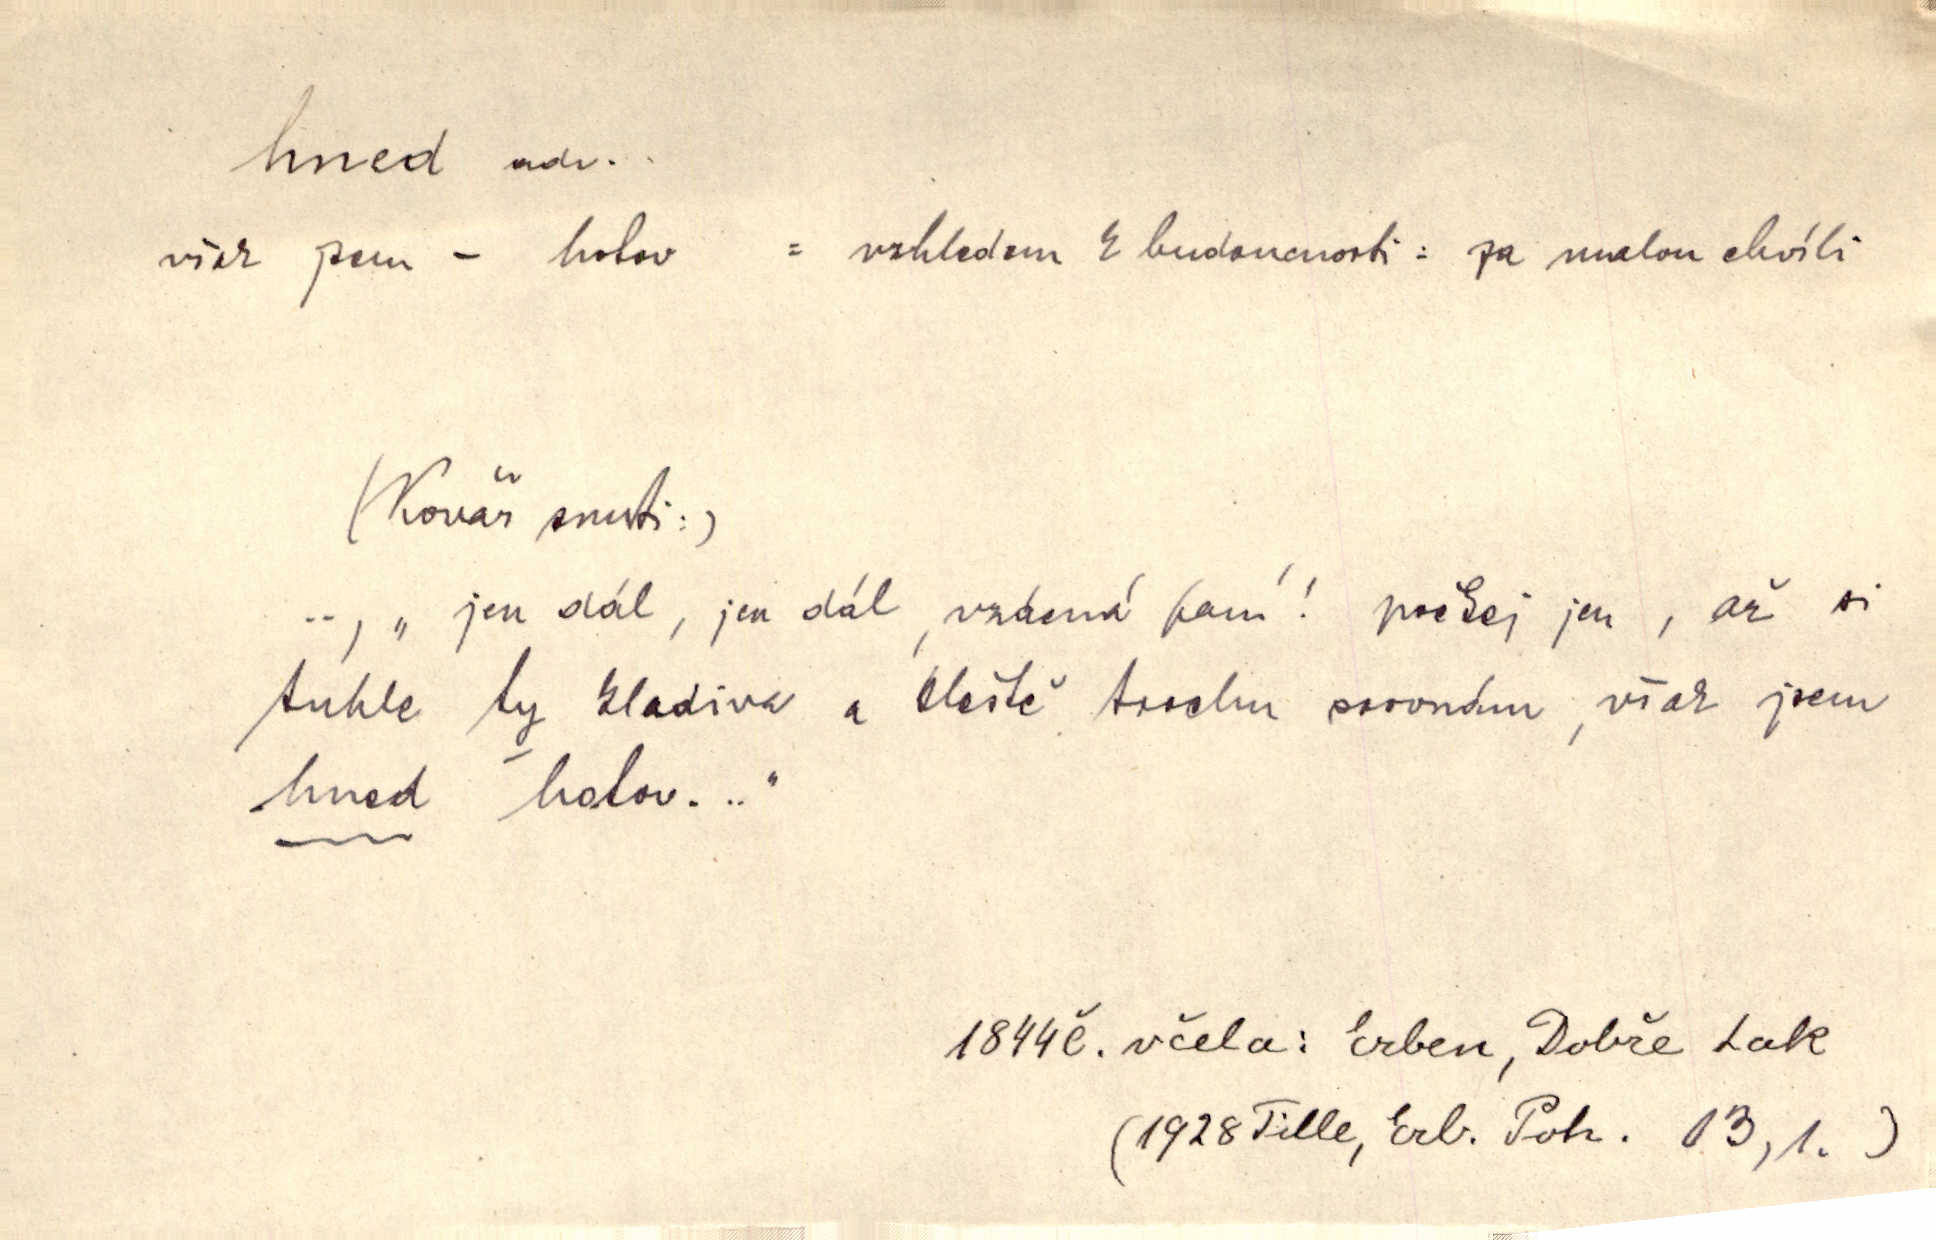 hned adv.
však jsem – hotov = vzhledem k budoucnosti: za malou chvíli
(Kovář smrti:)
.., „jen dál, jen dál, vzácná paní! počkej jen, až si
tuhle ty kladiva a kleště trochu srovnám, však jsem
hned hotov. .."
1844 Č. včela: Erben, Dobře tak
(1928 Tille, Erb. Poh. 13, 1.)